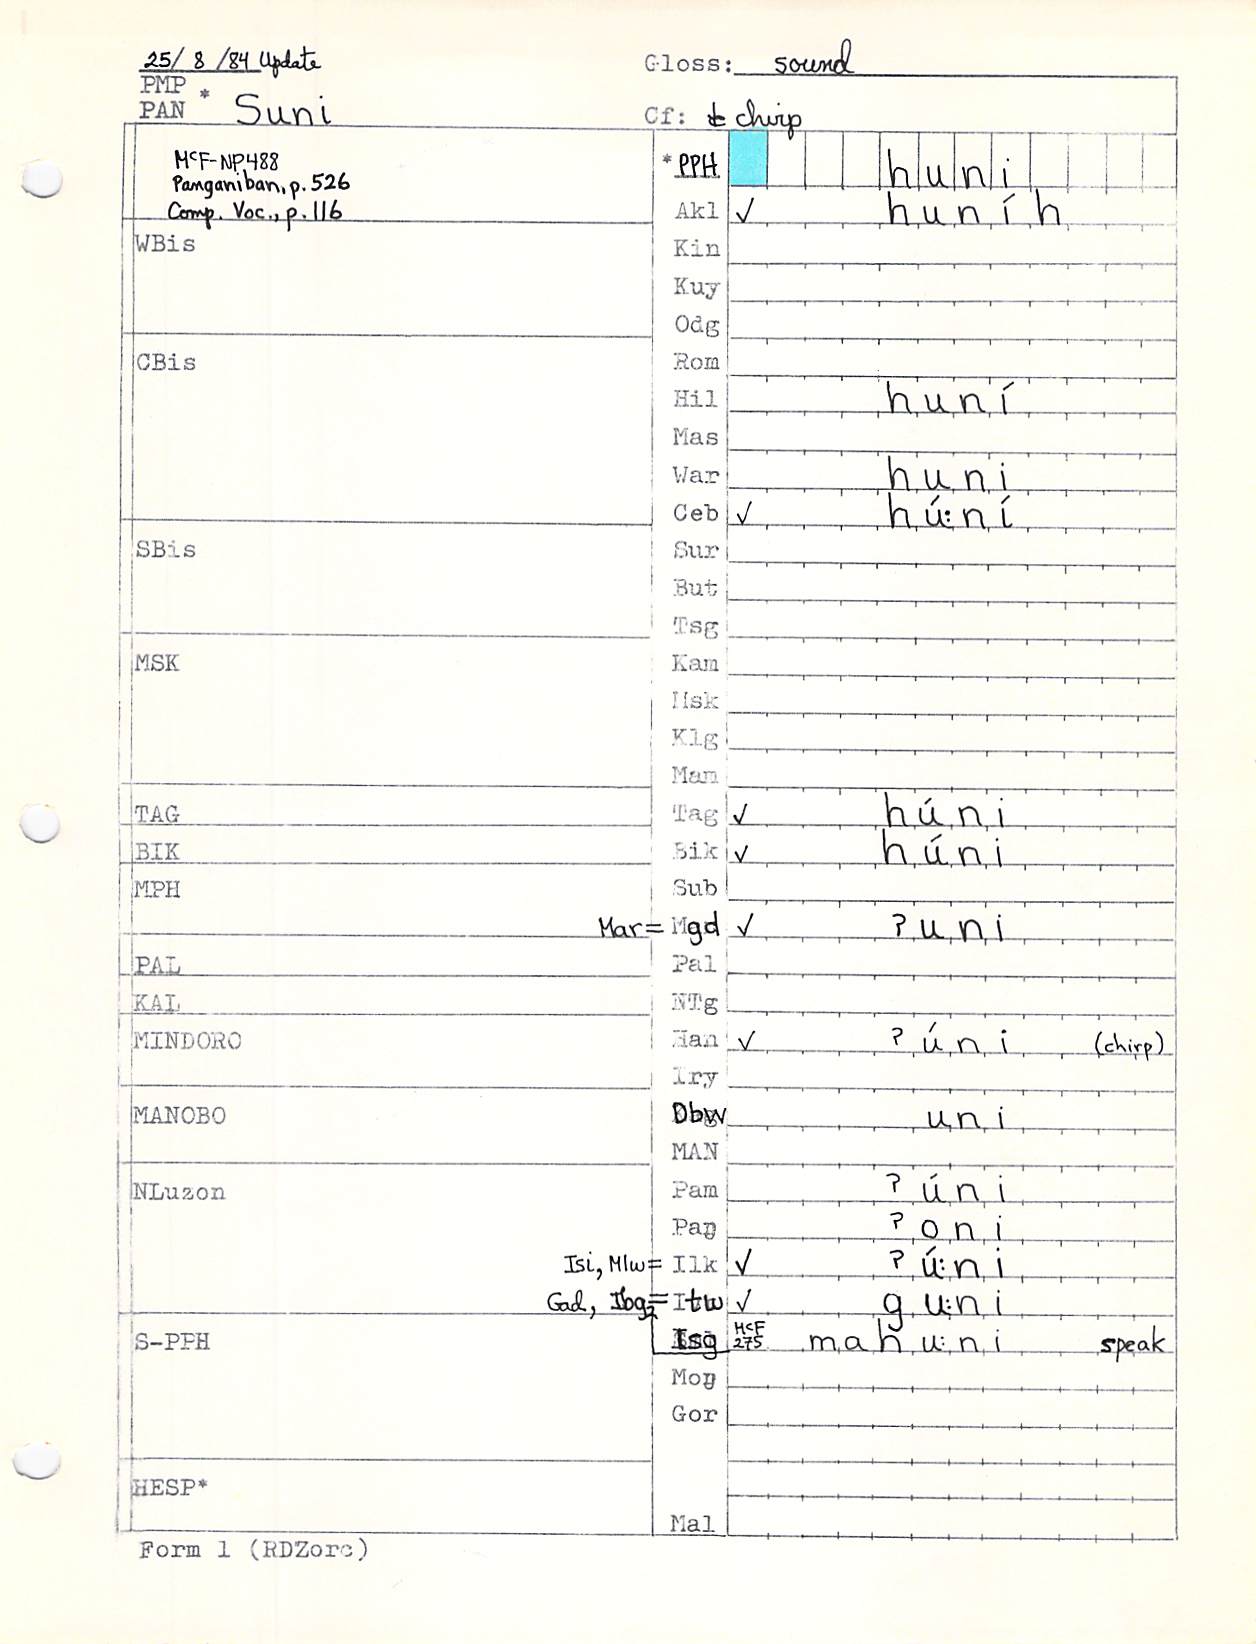 25/ 8 /84 Update
Gloss: sound
PMP
PAN * Suni
Cf: ± chirp
McF-NP488
Panganiban, p. 526
Comp. Voc., p. 116
*PPH huni
Akl ✓ huníh
WBis
Kin
Kuy
Odg
CBis
Rom
Hil huní
Mas
War huni
Ceb ✓ hú:ní
SBis
Sur
But
Tsg
MSK
Kam
Msk
Klg
Man
TAG
Tag ✓ húni
BIK
Bik ✓ húni
MPH
Sub
Mar = Mgd ✓ ʔuni
PAL
Pal
KAL
NTg
MINDORO
Han ✓ ʔúni (chirp)
Iry
MANOBO
Dbw uni
MAN
NLuzon
Pam ʔúni
Paŋ ʔoni
Isi, Mlw = Ilk ✓ ʔú:ni
Gad, Ibg2 = Itw ✓ gu:ni
S-PPH
Isg McF 275 mahu:ni speak
Moŋ
Gor
HESP*
Mal
Form 1 (RDZorc)